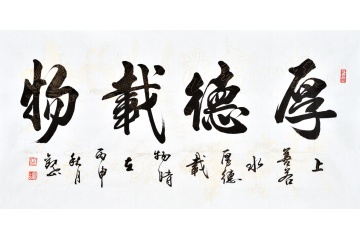 厚德載物
上善若水
厚德載物
時在丙申秋月